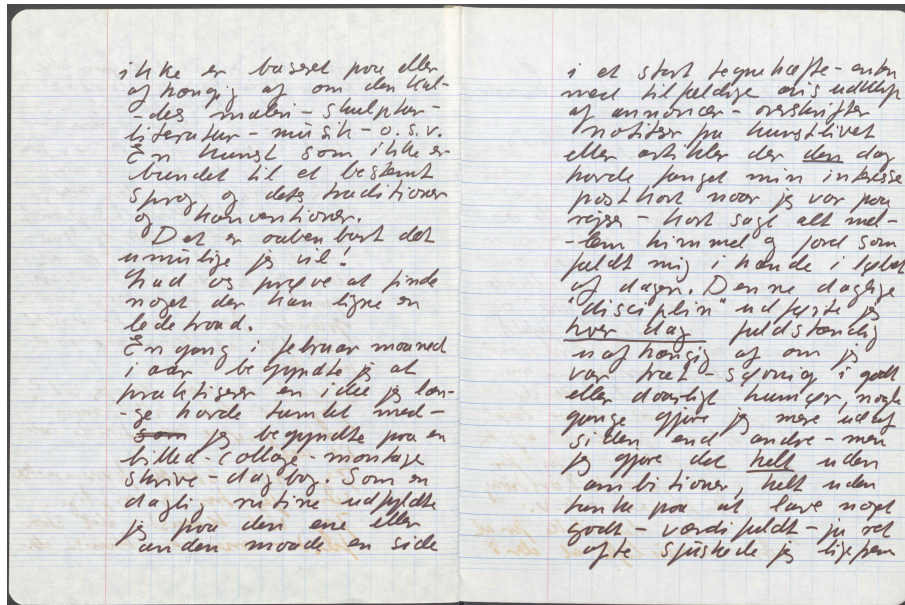 ikke er baseret paa eller
afhængig af om den kal-
-des maleri - skulptur -
literatur - müsik - o.s.v.
Èn kunst som ikke er
bundet til et bestemt
sprog og dets traditioner
og konventioner.
Det er aabenbart det
umülige jeg vil!
Lad os prøve at finde
noget der kan ligne en
ledetraad.
Èn gang i februar maaned
i aar begyndte jeg at
praktisere en idée jeg læn-
-ge havde tumlet med -
som jeg begyndte paa en
billed-collage-montage
skrive-dagbog. Som en
daglig rutine udfyldte
jeg paa den ene eller
anden maade en side
i et stort tegnehæfte - enten
med tilfældige avisudklip
af annoncer - overskrifter
notitser fra kunstlivet
eller artikler der den dag
havde fanget min interesse
postkort naar jeg var paa
rejse - kort sagt alt mel-
-lem himmel og jord som
faldt mig i hænde i løbet
af dagen. Denne daglige
"disciplin" udførte jeg
hver dag fuldstændig
uafhængig af om jeg
var træt - søvnig i godt
eller daarligt humør, nogle
gange gjore jeg mere ud af
siden end andre - men
jeg gjore det helt uden
ambitioner, helt uden
tanke paa at lave noget
godt - værdifuldt - ja ret
ofte sjuskede jeg ligefrem